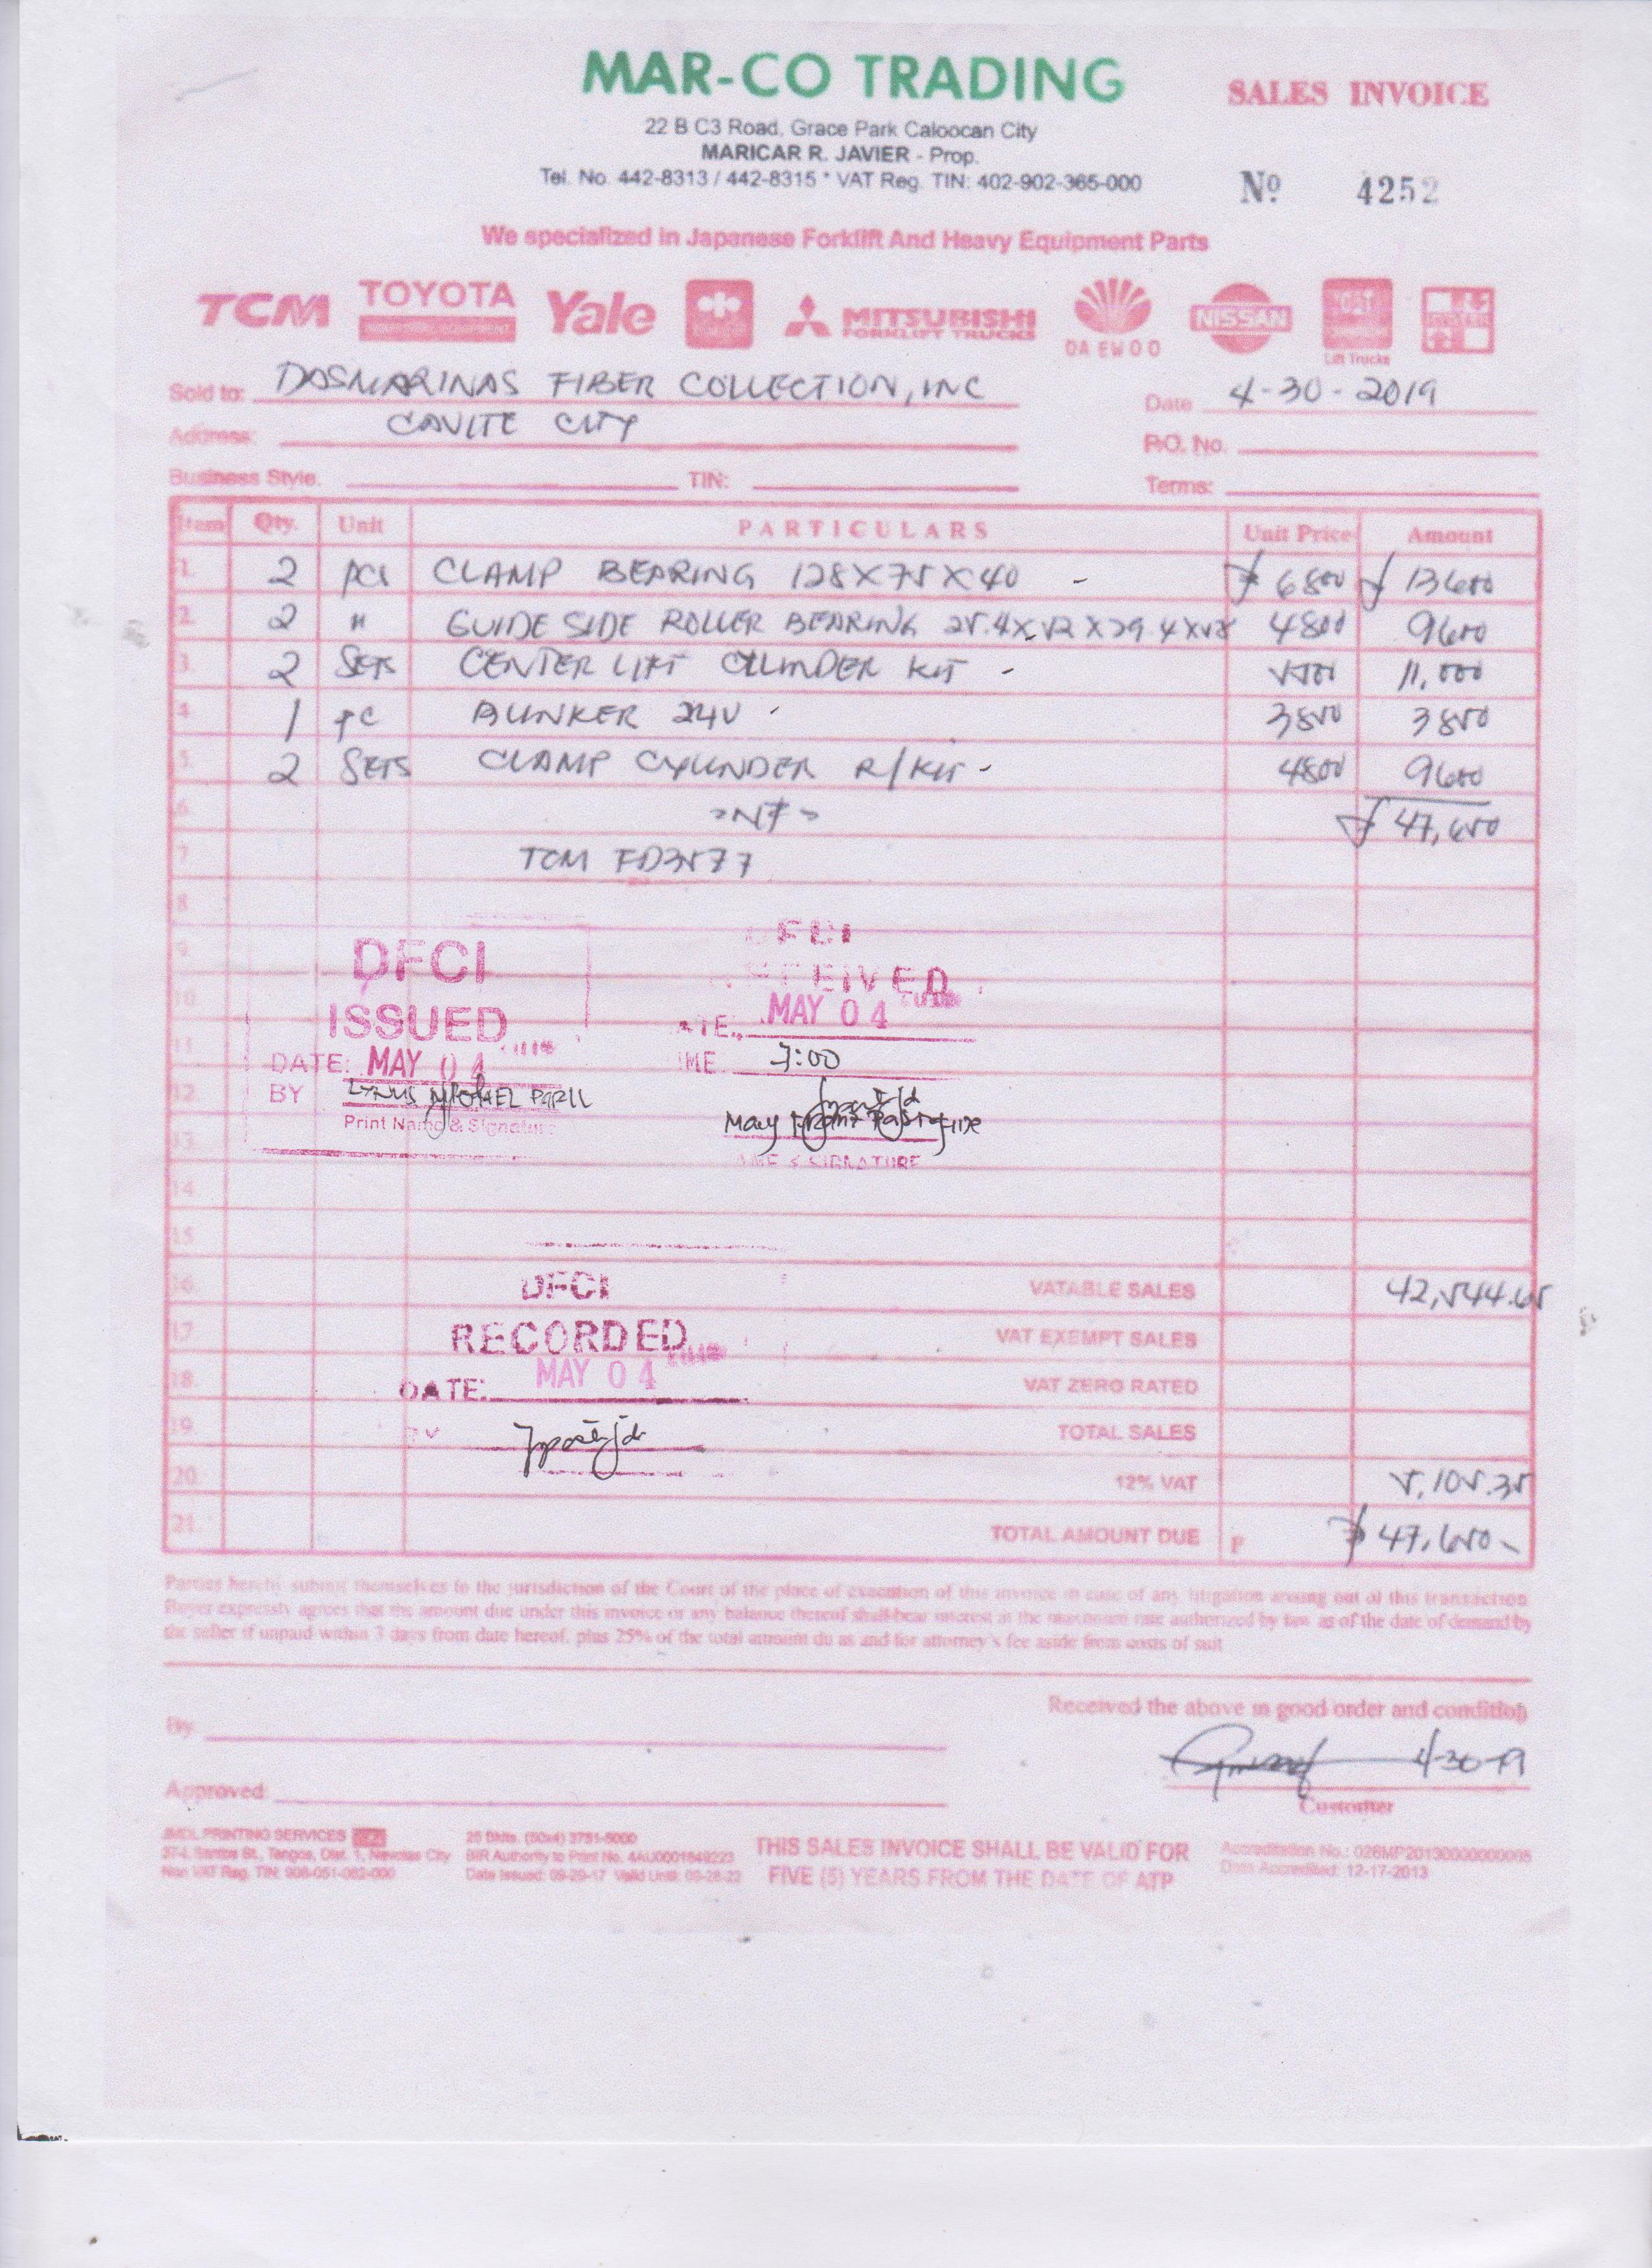 MAR-CO TRADING
SALES INVOICE
22 B C3 Road, Grace Park Caloocan City
MARICAR R. JAVIER - Prop.
Tel. No. 442-8313 / 442-8315 * VAT Reg. TIN: 402-902-365-000
Nº 4252
We specialized in Japanese Forklift And Heavy Equipment Parts
TCM TOYOTA Yale MITSUBISHI FORKLIFT TRUCKS DAEWOO NISSAN CAT Lift Trucks
Sold to: DASMARINAS FIBER COLLECTION, INC
Date 4-30-2019
Address: CAVITE CITY
P.O. No.
Business Style. TIN:
Terms:
Item Qty. Unit PARTICULARS Unit Price Amount
1. 2 pcs CLAMP BEARING 128X75X40 - ₱ 6800 ₱ 13600
2. 2 " GUIDE SIDE ROLLER BEARING 25.4X52X29.4X58 4800 9600
3. 2 SETS CENTER LIFT CYLINDER KIT - 5500 11,000
4 1 pc BUNKER 24V - 3850 3850
5. 2 SETS CLAMP CYLINDER R/KIT - 4800 9600
6. >NF> ₱ 47,650
7 TCM FD35Z7
8
9.
10.
11
12.
13.
14
15
DFCI
ISSUED
DATE: MAY 04
BY MICHAEL
Print Name & Signature
DFCI
RECEIVED
DATE: MAY 04
TIME 7:00
NAME & SIGNATURE
DFCI
RECORDED
DATE: MAY 04
BY
16. VATABLE SALES 42,544.65
17. VAT EXEMPT SALES
18. VAT ZERO RATED
19. TOTAL SALES
20. 12% VAT 5,105.35
21. TOTAL AMOUNT DUE P ₱ 47,650-
Parties hereby submit themselves to the jurisdiction of the Court of the place of execution of this invoice in case of any litigation arising out of this transaction
Buyer expressly agrees that the amount due under this invoice or any balance thereof shall bear interest at the maximum rate authorized by law as of the date of demand by
the seller if unpaid within 3 days from date hereof, plus 25% of the total amount du as and for attorney's fee aside from costs of suit
Received the above in good order and condition
By
4-30-19
Approved:
Customer
JMDL PRINTING SERVICES
Santos St., Tangos, Dist. 1, Navotas City
Non VAT Reg. TIN: 908-051-062-000
25 Bklts. (50x4) 3751-5000
BIR Authority to Print No. 4AU0001849223
Date Issued: 09-29-17 Valid Until: 09-28-22
THIS SALES INVOICE SHALL BE VALID FOR
FIVE (5) YEARS FROM THE DATE OF ATP
Accreditation No.:
Date Accredited: 12-17-2013